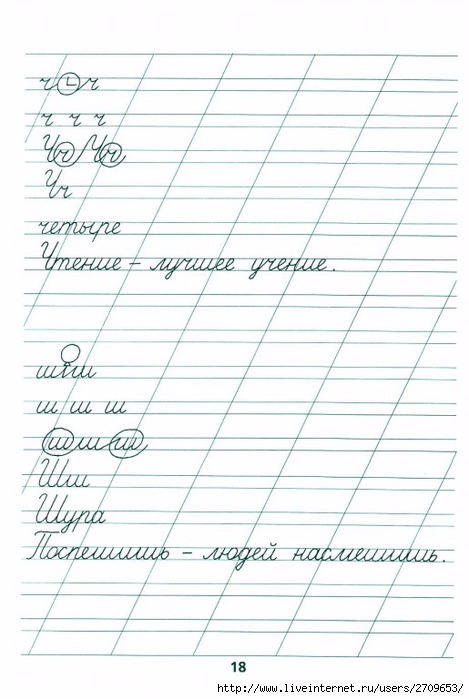 ч ч
ч ч ч
Чч Чч
Чч
четыре
Чтение – лучшее учение.
шш
ш ш ш
шшш
Шш
Шура
Поспешишь – людей насмешишь.
18
http://www.liveinternet.ru/users/2709653/